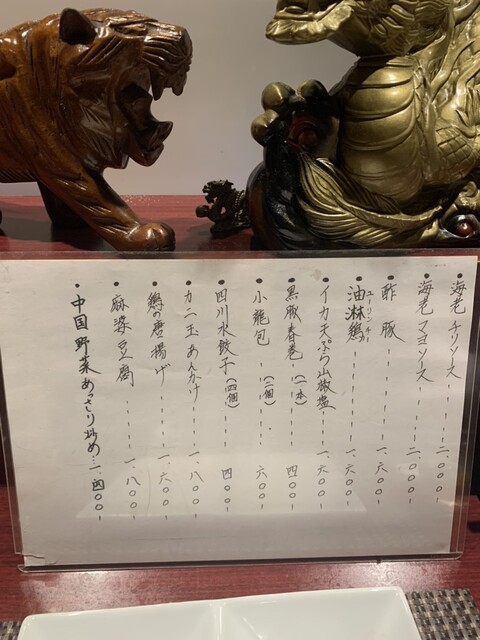 ・海老チリソース----二.〇〇〇-
・海老マヨソース----二.〇〇〇-
・酢豚--------一.六〇〇-
・油淋鶏ユーリンチー------一.六〇〇-
・イカ天ぷら山椒塩---一.六〇〇-
・黒豚春巻(一本)-----四〇〇-
・小籠包(二個)-----六〇〇-
・四川水餃子(四個)----四〇〇-
・カニ玉あんかけ----一.八〇〇-
・鶏の唐揚げ------一.六〇〇-
・麻婆豆腐-------一.八〇〇-
・中国野菜あっさり炒め…二.四〇〇-